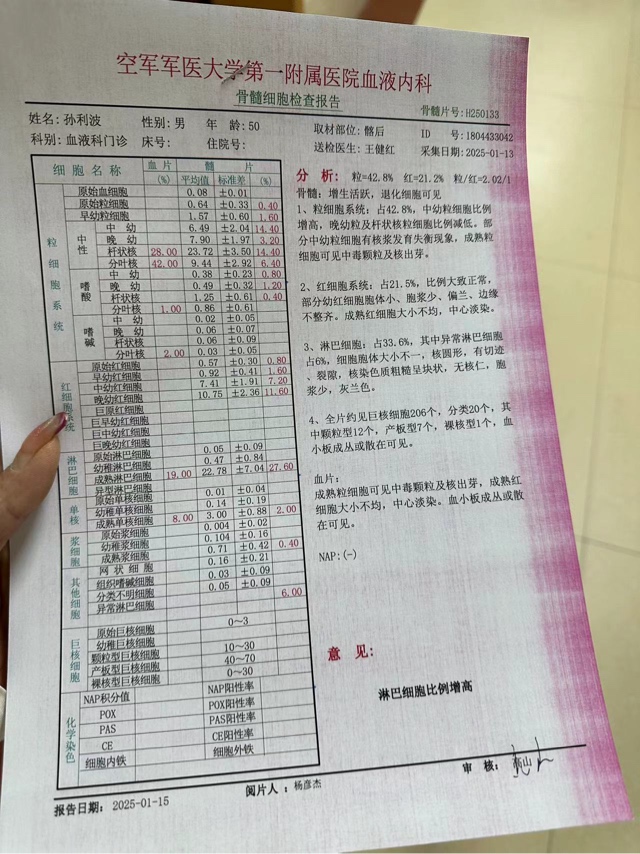 空军军医大学第一附属医院血液内科
骨髓细胞检查报告
骨髓片号:H250133
姓名: 孙利波 性别: 男 年 龄: 50 取材部位: 髂后 ID 号: 1804433042
科别: 血液科门诊 床号: 住院号: 送检医生: 王健红 采集日期: 2025-01-13
细 胞 名 称 血 片 髓 片
(%) 平均值 标准差 (%)
粒细胞系统
原始血细胞 0.08 ±0.01
原始粒细胞 0.64 ±0.33 0.40
早幼粒细胞 1.57 ±0.60 1.60
中性
中 幼 6.49 ±2.04 14.40
晚 幼 7.90 ±1.97 3.20
杆状核 28.00 23.72 ±3.50 14.40
分叶核 42.00 9.44 ±2.92 6.40
嗜酸
中 幼 0.38 ±0.23 0.80
晚 幼 0.49 ±0.32 1.20
杆状核 1.25 ±0.61 0.40
分叶核 1.00 0.86 ±0.61
嗜碱
中 幼 0.02 ±0.05
晚 幼 0.06 ±0.07
杆状核 0.06 ±0.09
分叶核 2.00 0.03 ±0.05
红细胞系统
原始红细胞 0.57 ±0.30 0.80
早幼红细胞 0.92 ±0.41 1.60
中幼红细胞 7.41 ±1.91 7.20
晚幼红细胞 10.75 ±2.36 11.60
巨原红细胞
巨早幼红细胞
巨中幼红细胞
巨晚幼红细胞
淋巴细胞
原始淋巴细胞 0.05 ±0.09
幼稚淋巴细胞 0.47 ±0.84
成熟淋巴细胞 19.00 22.78 ±7.04 27.60
异型淋巴细胞
单核
原始单核细胞 0.01 ±0.04
幼稚单核细胞 0.14 ±0.19
成熟单核细胞 8.00 3.00 ±0.88 2.00
浆细胞
原始浆细胞 0.004 ±0.02
幼稚浆细胞 0.104 ±0.16
成熟浆细胞 0.71 ±0.42 0.40
其他细胞
网 状 细 胞 0.16 ±0.21
组织嗜碱细胞 0.03 ±0.09
分类不明细胞 0.05 ±0.09
异常淋巴细胞 6.00
巨核细胞
原始巨核细胞 0~3
幼稚巨核细胞
颗粒型巨核细胞 10~30
产板型巨核细胞 40~70
裸核型巨核细胞 0~30
化学染色
NAP积分值 NAP阳性率
POX POX阳性率
PAS PAS阳性率
CE CE阳性率
细胞内铁 细胞外铁
分 析: 粒=42.8% 红=21.2% 粒/红=2.02/1
骨髓: 增生活跃,退化细胞可见
1、粒细胞系统: 占42.8%, 中幼粒细胞比例
增高, 晚幼粒及杆状核粒细胞比例减低。部
分中幼粒细胞有核浆发育失衡现象, 成熟粒
细胞可见中毒颗粒及核出芽。
2、红细胞系统: 占21.5%, 比例大致正常,
部分幼红细胞胞体小、胞浆少、偏兰、边缘
不整齐。成熟红细胞大小不均, 中心淡染。
3、淋巴细胞: 占33.6%, 其中异常淋巴细胞
占6%, 细胞胞体大小不一, 核圆形, 有切迹
、裂隙, 核染色质粗糙呈块状, 无核仁, 胞
浆少, 灰兰色。
4、全片约见巨核细胞206个, 分类20个, 其
中颗粒型12个, 产板型7个, 裸核型1个, 血
小板成丛或散在可见。
血片:
成熟粒细胞可见中毒颗粒及核出芽, 成熟红
细胞大小不均, 中心淡染。血小板成丛或散
在可见。
NAP:(-)
意 见:
淋巴细胞比例增高
报告日期: 2025-01-15 阅片人: 杨彦杰 审 核: